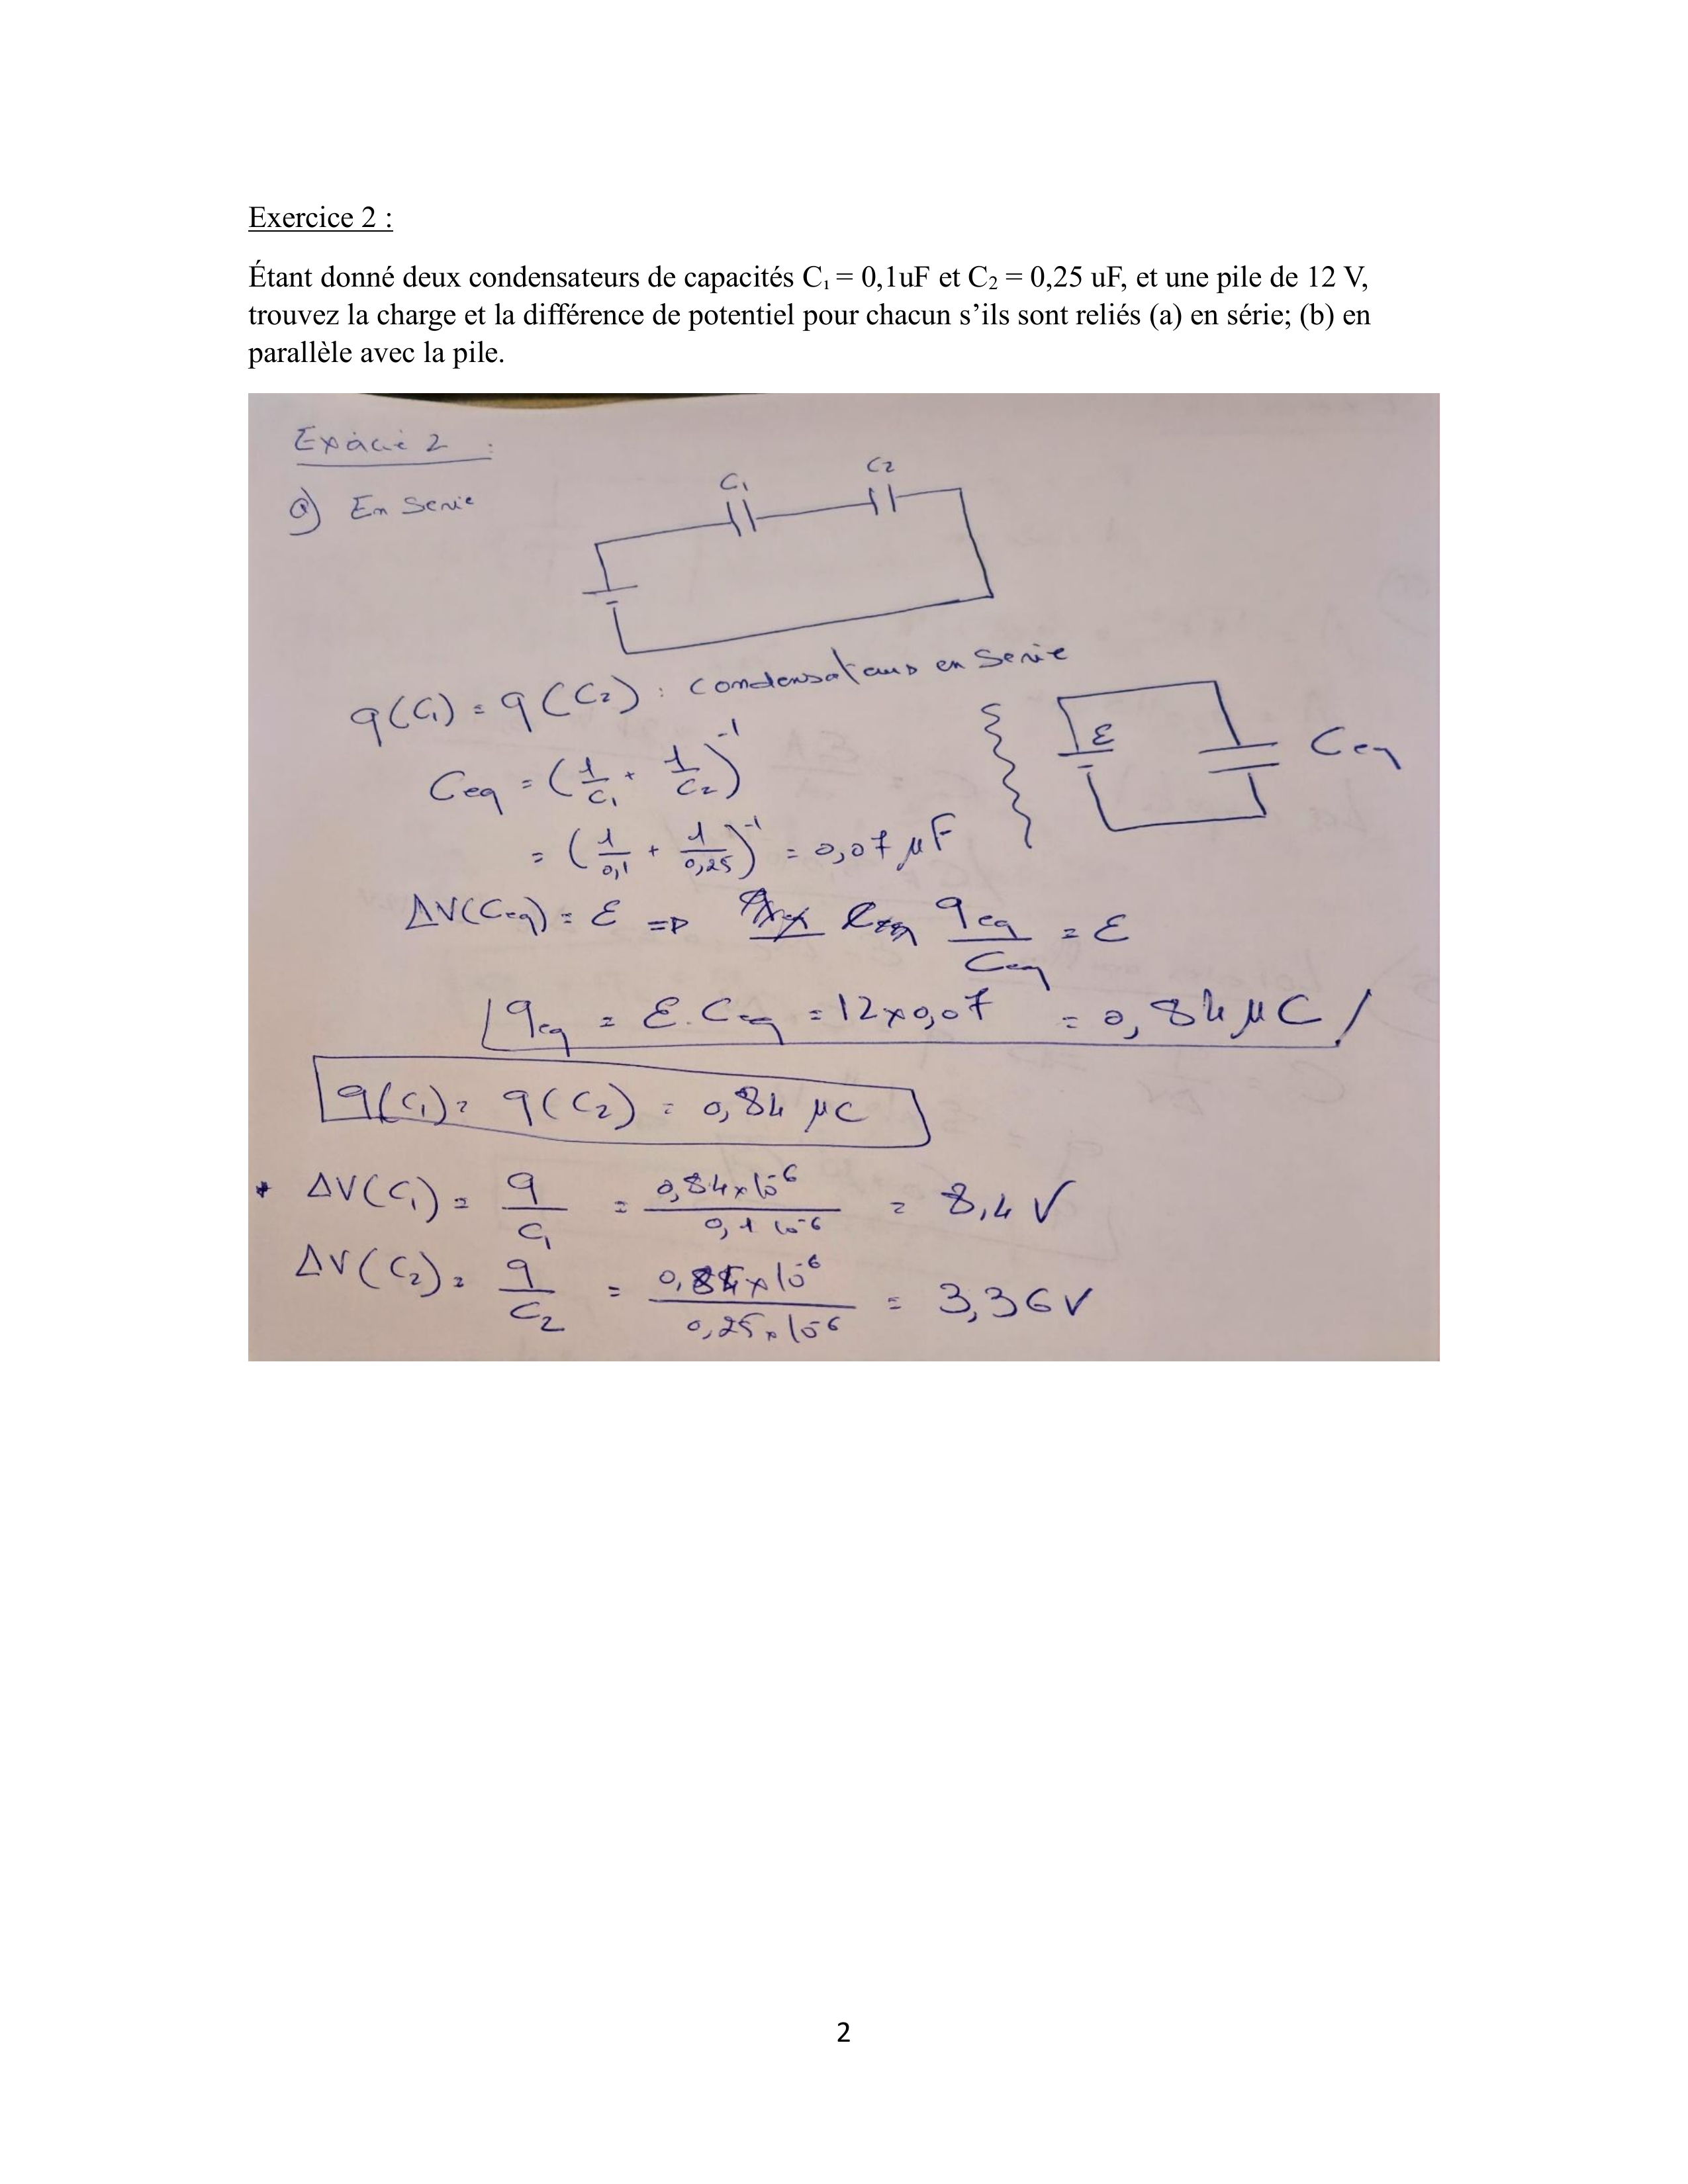 Exercice 2 :
Étant donné deux condensateurs de capacités C₁ = 0,1uF et C₂ = 0,25 uF, et une pile de 12 V,
trouvez la charge et la différence de potentiel pour chacun s’ils sont reliés (a) en série; (b) en
parallèle avec la pile.
2 :
a) En Serie
C₁
C₂
q(C₁) = q(C₂) : Condensateurs en Serie
Ceq = (1/C₁ + 1/C₂)⁻¹
ε
Ceq
= (1/0,1 + 1/0,25)⁻¹ = 0,07 μF
ΔV(Ceq) = ε => qeq/Ceq = ε
qeq = ε.Ceq = 12x0,07 = 0,84 μC
q(C₁) = q(C₂) = 0,84 μC
* ΔV(C₁) = q/C₁ = 0,84x10⁻⁶/0,1 10⁻⁶ = 8,4 V
ΔV(C₂) = q/C₂ = 0,84x10⁻⁶/0,25x10⁻⁶ = 3,36V
2